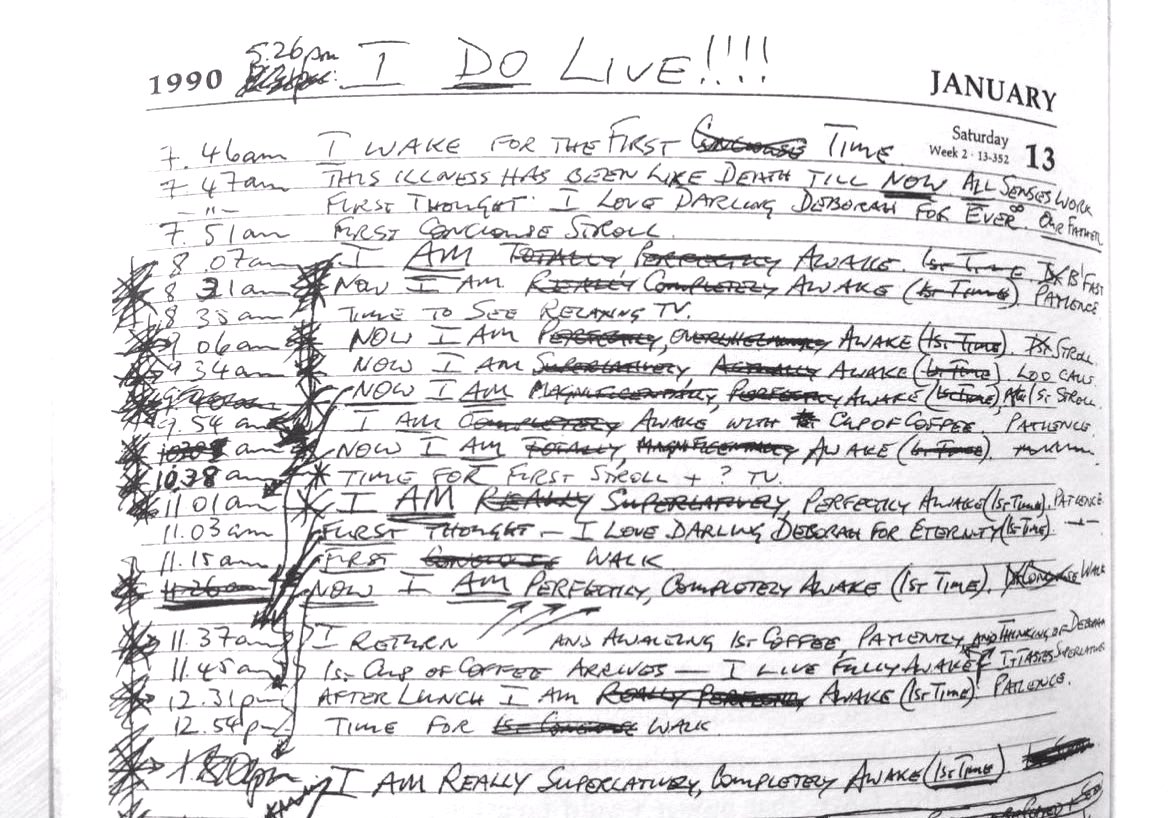 5.26pm I DO LIVE!!!!
1990 JANUARY
Saturday
Week 2 · 13-352 13
7.46am I WAKE FOR THE FIRST CONCIOUSE TIME.
7.47am THIS ILLNESS HAS BEEN LIKE DEATH TILL NOW. ALL SENSES WORK
- " - FIRST THOUGHT: I LOVE DARLING DEBORAH FOR EVER. OUR FATHER
7.51am FIRST CONCIOUSE STROLL.
8.07am I AM TOTALLY PERFECTLY AWAKE. 1ST TIME B'FAST
8 31am NOW I AM REALLY COMPLETELY AWAKE (1ST TIME) PATIENCE
8 35am TIME TO SEE RELAXING TV.
9 06am NOW I AM PERFECTLY, OVERWHELMINGLY AWAKE (1ST TIME). 1ST STROLL.
9 34am NOW I AM SUPERLATIVELY ACTUALLY AWAKE (1ST TIME) LOO CALL.
NOW I AM MAGNIFICENTLY, PERFECTLY AWAKE (1ST TIME), 1ST STROLL.
9.54 am I AM COMPLETELY AWAKE WITH CUP OF COFFEE. PATIENCE.
NOW I AM TOTALLY MAGNIFICENTLY AWAKE (1ST TIME).
10.38 am TIME FOR FIRST STROLL + ? TV.
11.01am I AM REALLY SUPERLATIVELY, PERFECTLY AWAKE (1ST TIME). PATIENCE.
11.03am FIRST THOUGHT - I LOVE DARLING DEBORAH FOR ETERNITY (1ST TIME). - " -
11.15am FIRST CONCIOUSE WALK
11.26am NOW I AM PERFECTLY, COMPLETELY AWAKE (1ST TIME). CONCIOUSE WALK
11.37am I RETURN AND AWAITING 1ST COFFEE, PATIENTLY, AND THINKING OF DEBORAH
11.45am 1ST CUP OF COFFEE ARRIVES — I LIVE FULLY AWAKE IT TASTES SUPERLATIVE
12.31pm AFTER LUNCH I AM REALLY PERFECTLY AWAKE (1ST TIME). PATIENCE.
12.54pm TIME FOR 1ST CONCIOUSE WALK
I AM REALLY SUPERLATIVELY, COMPLETELY AWAKE (1ST TIME)